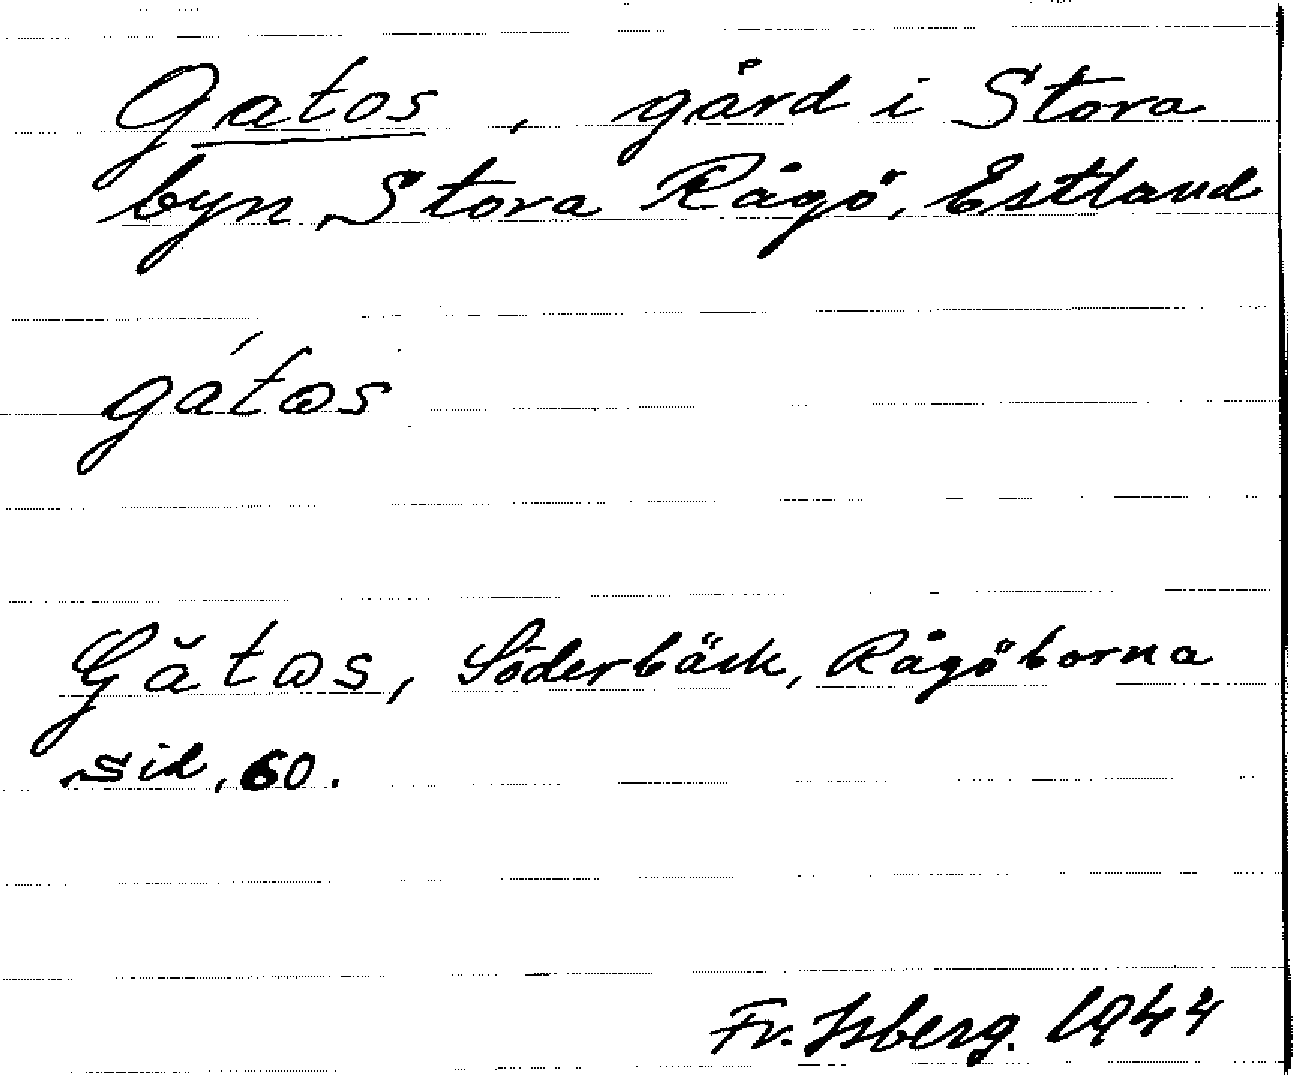 Gatos, gård i Stora
byn, Stora Rågö, Estland
gátos
Gătos, Söderbäck, Rågöborna
sid, 60.
Fr. Isberg. 1944